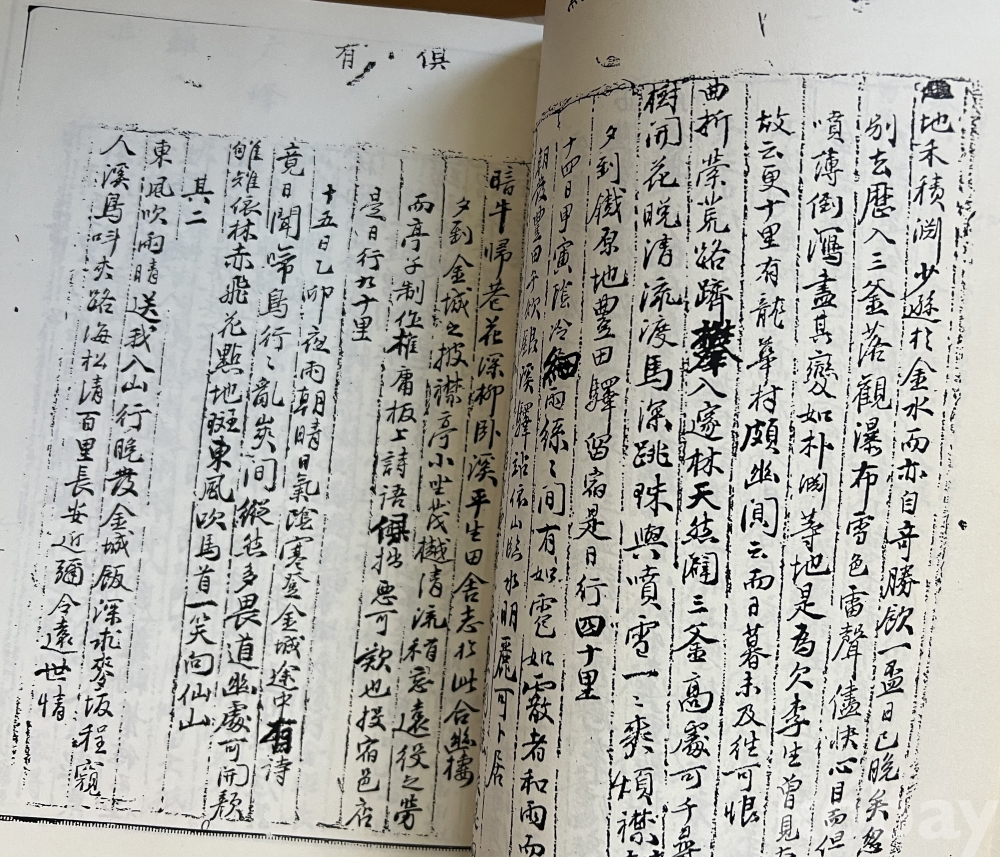 地禾積渊少遜於金水而亦自奇勝飲一盃日已晚矣忽
別去歷入三釜落觀瀑布雪色雷聲儘快心目而但
噴薄倒瀉盡其變如朴渊等地是為欠李生曾見
故云更十里有龍華村頗幽闃云而日暮未及往可恨
曲折崇荒路躋攀入邃林天然闢三釜高處可千尋
樹開花晚清流渡馬深跳珠與噴雪一一爽煩襟
夕到鐵原地豊田驛留宿是日行四十里
十四日甲寅陰冷細雨絲絲間有如雹如霰者和雨而
朝發豊田午飲銀溪驛站依山臨水明麗可卜居
暗牛歸巷花深柳卧溪平生田舍志於此合幽棲
夕到金城之披襟亭小坐茂樾清流稍忘遠役之勞
而亭子制作椎庸板上詩語俱拙惡可欸也投宿邑店
是日行九十里
十五日乙卯夜雨朝晴日氣陰寒登金城途中有詩
竟日聞啼鳥行行亂嶺間縱然多畏道幽處可開顏
雊雉依林赤飛花點地斑東風吹馬首一笑向仙山
其二
東風吹雨晴送我入山行晚發金城飯深求麥坂程窺
人溪鳥呌夾路海松清百里長安近彌令遠世情
俱
有